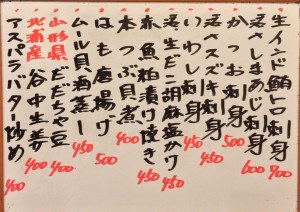 生インド鮪トロ刺身 900
活さしまあじ刺身 600
かつお刺身 500
活スズキ刺身 450
いわし刺身 450
活生だこ胡麻塩かけ 450
赤魚粕漬け焼き 450
本つぶ貝煮 400
はも唐揚げ 500
ムール貝酒蒸し 450
山形県だだちゃ豆 400
北浦産谷中生姜 400
アスパラバター炒め 400